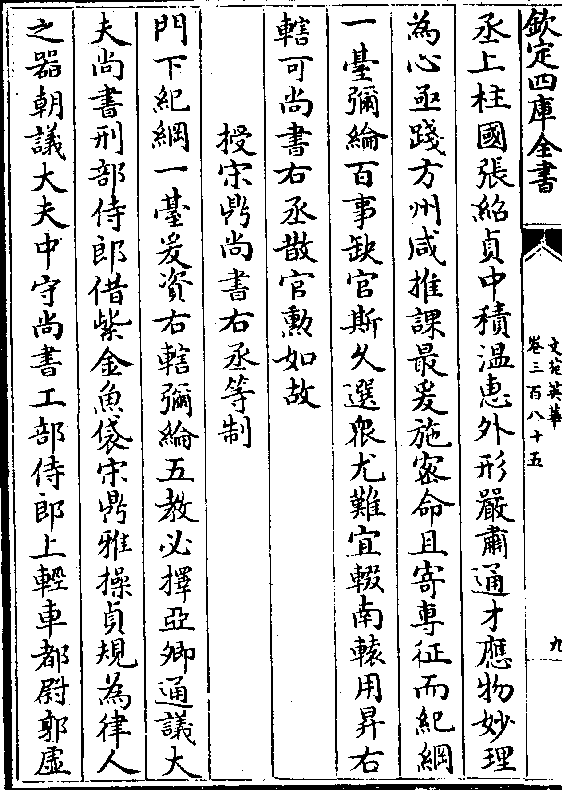 欽定四庫全書
文苑英華
卷三百八十五
九
丞上柱國張紹貞中積溫恵外形嚴肅通才應物妙理
為心亟踐方州咸推課最爰施宻命且寄專征而紀綱
一臺彌綸百事缺官斯久選衆尤難宜輟南轅用昇右
轄可尚書右丞散官勲如故
授宋鼎尚書右丞等制
門下紀綱一臺爰資右轄彌綸五教必擇亞卿通議大
夫尚書刑部侍郎借紫金魚袋宋鼎雅操貞規為律人
之器朝議大夫中守尚書工部侍郎上輕車都尉郭虛